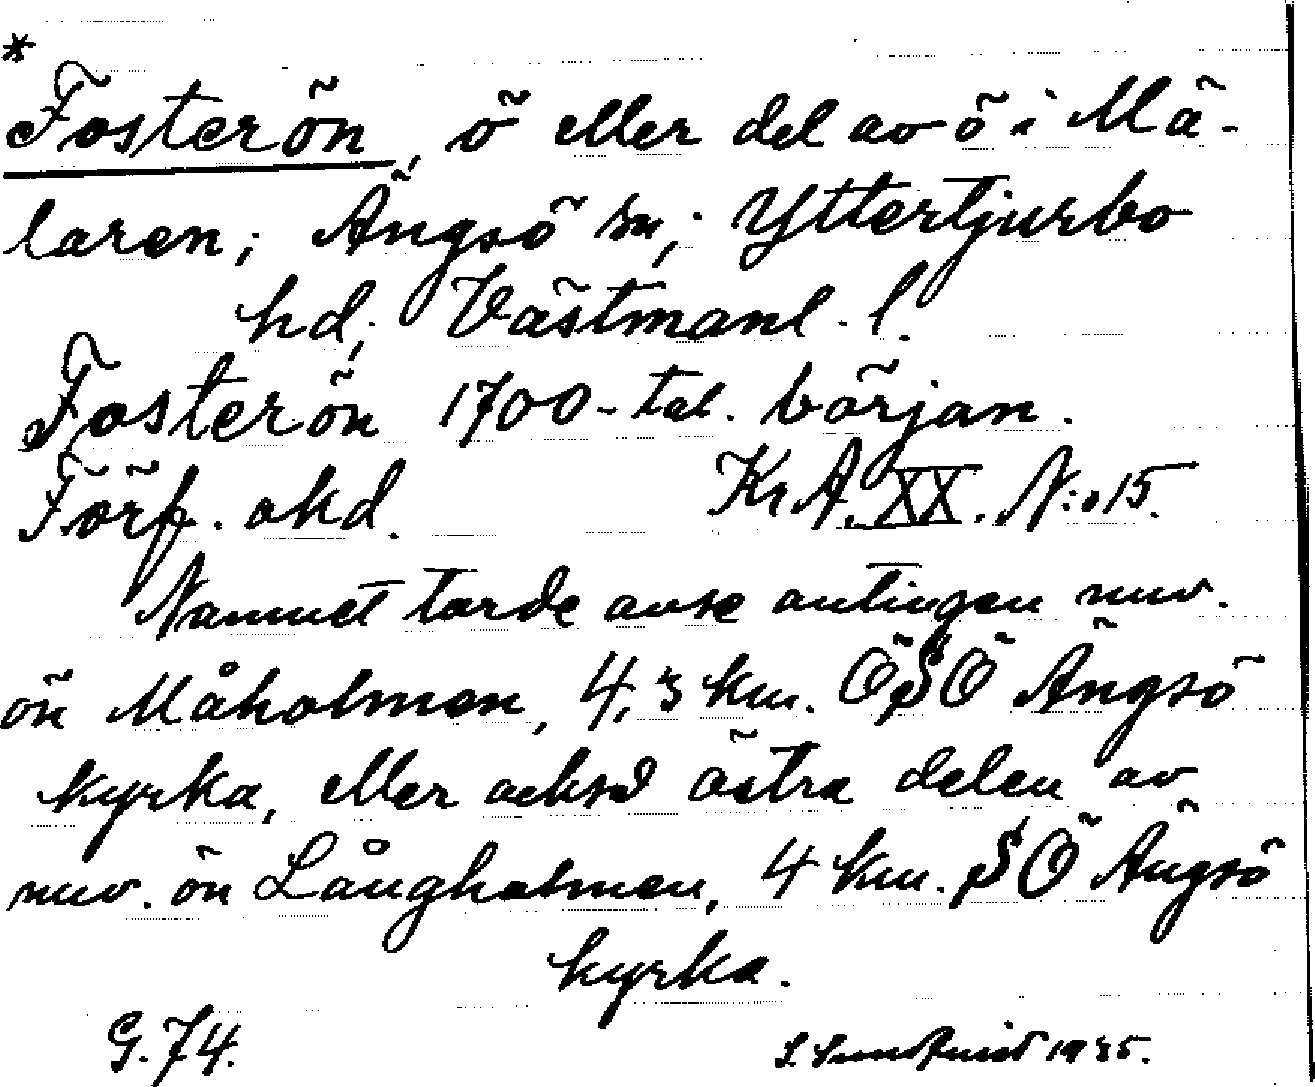 *
Fosterön, ö eller del av ö i Mä-
laren; Ängsö sn; Yttertjurbo
hd; Västmanl. l.
Fosterön 1700-tal. början.
Förf. okd. KrA. XX. N:o 15.
Namnet torde avse antingen nuv.
ön Måholmen, 4,3 km. ÖSÖ Ängsö
kyrka, eller också östra delen av
nuv. ön Långholmen, 4 km. SÖ Ängsö
kyrka.
G. 74. S. Sundquist 1935.